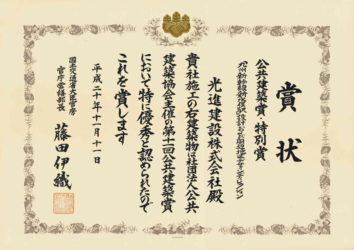 賞状
公共建築賞・特別賞
光進建設株式会社殿
貴社施工の右建築物は社団法人公共
建築協会主催の第十一回公共建築賞
において特に優秀と認められたので
これを賞します
平成二十年十一月十一日
国土交通省大臣官房
官庁営繕部長
藤田伊織